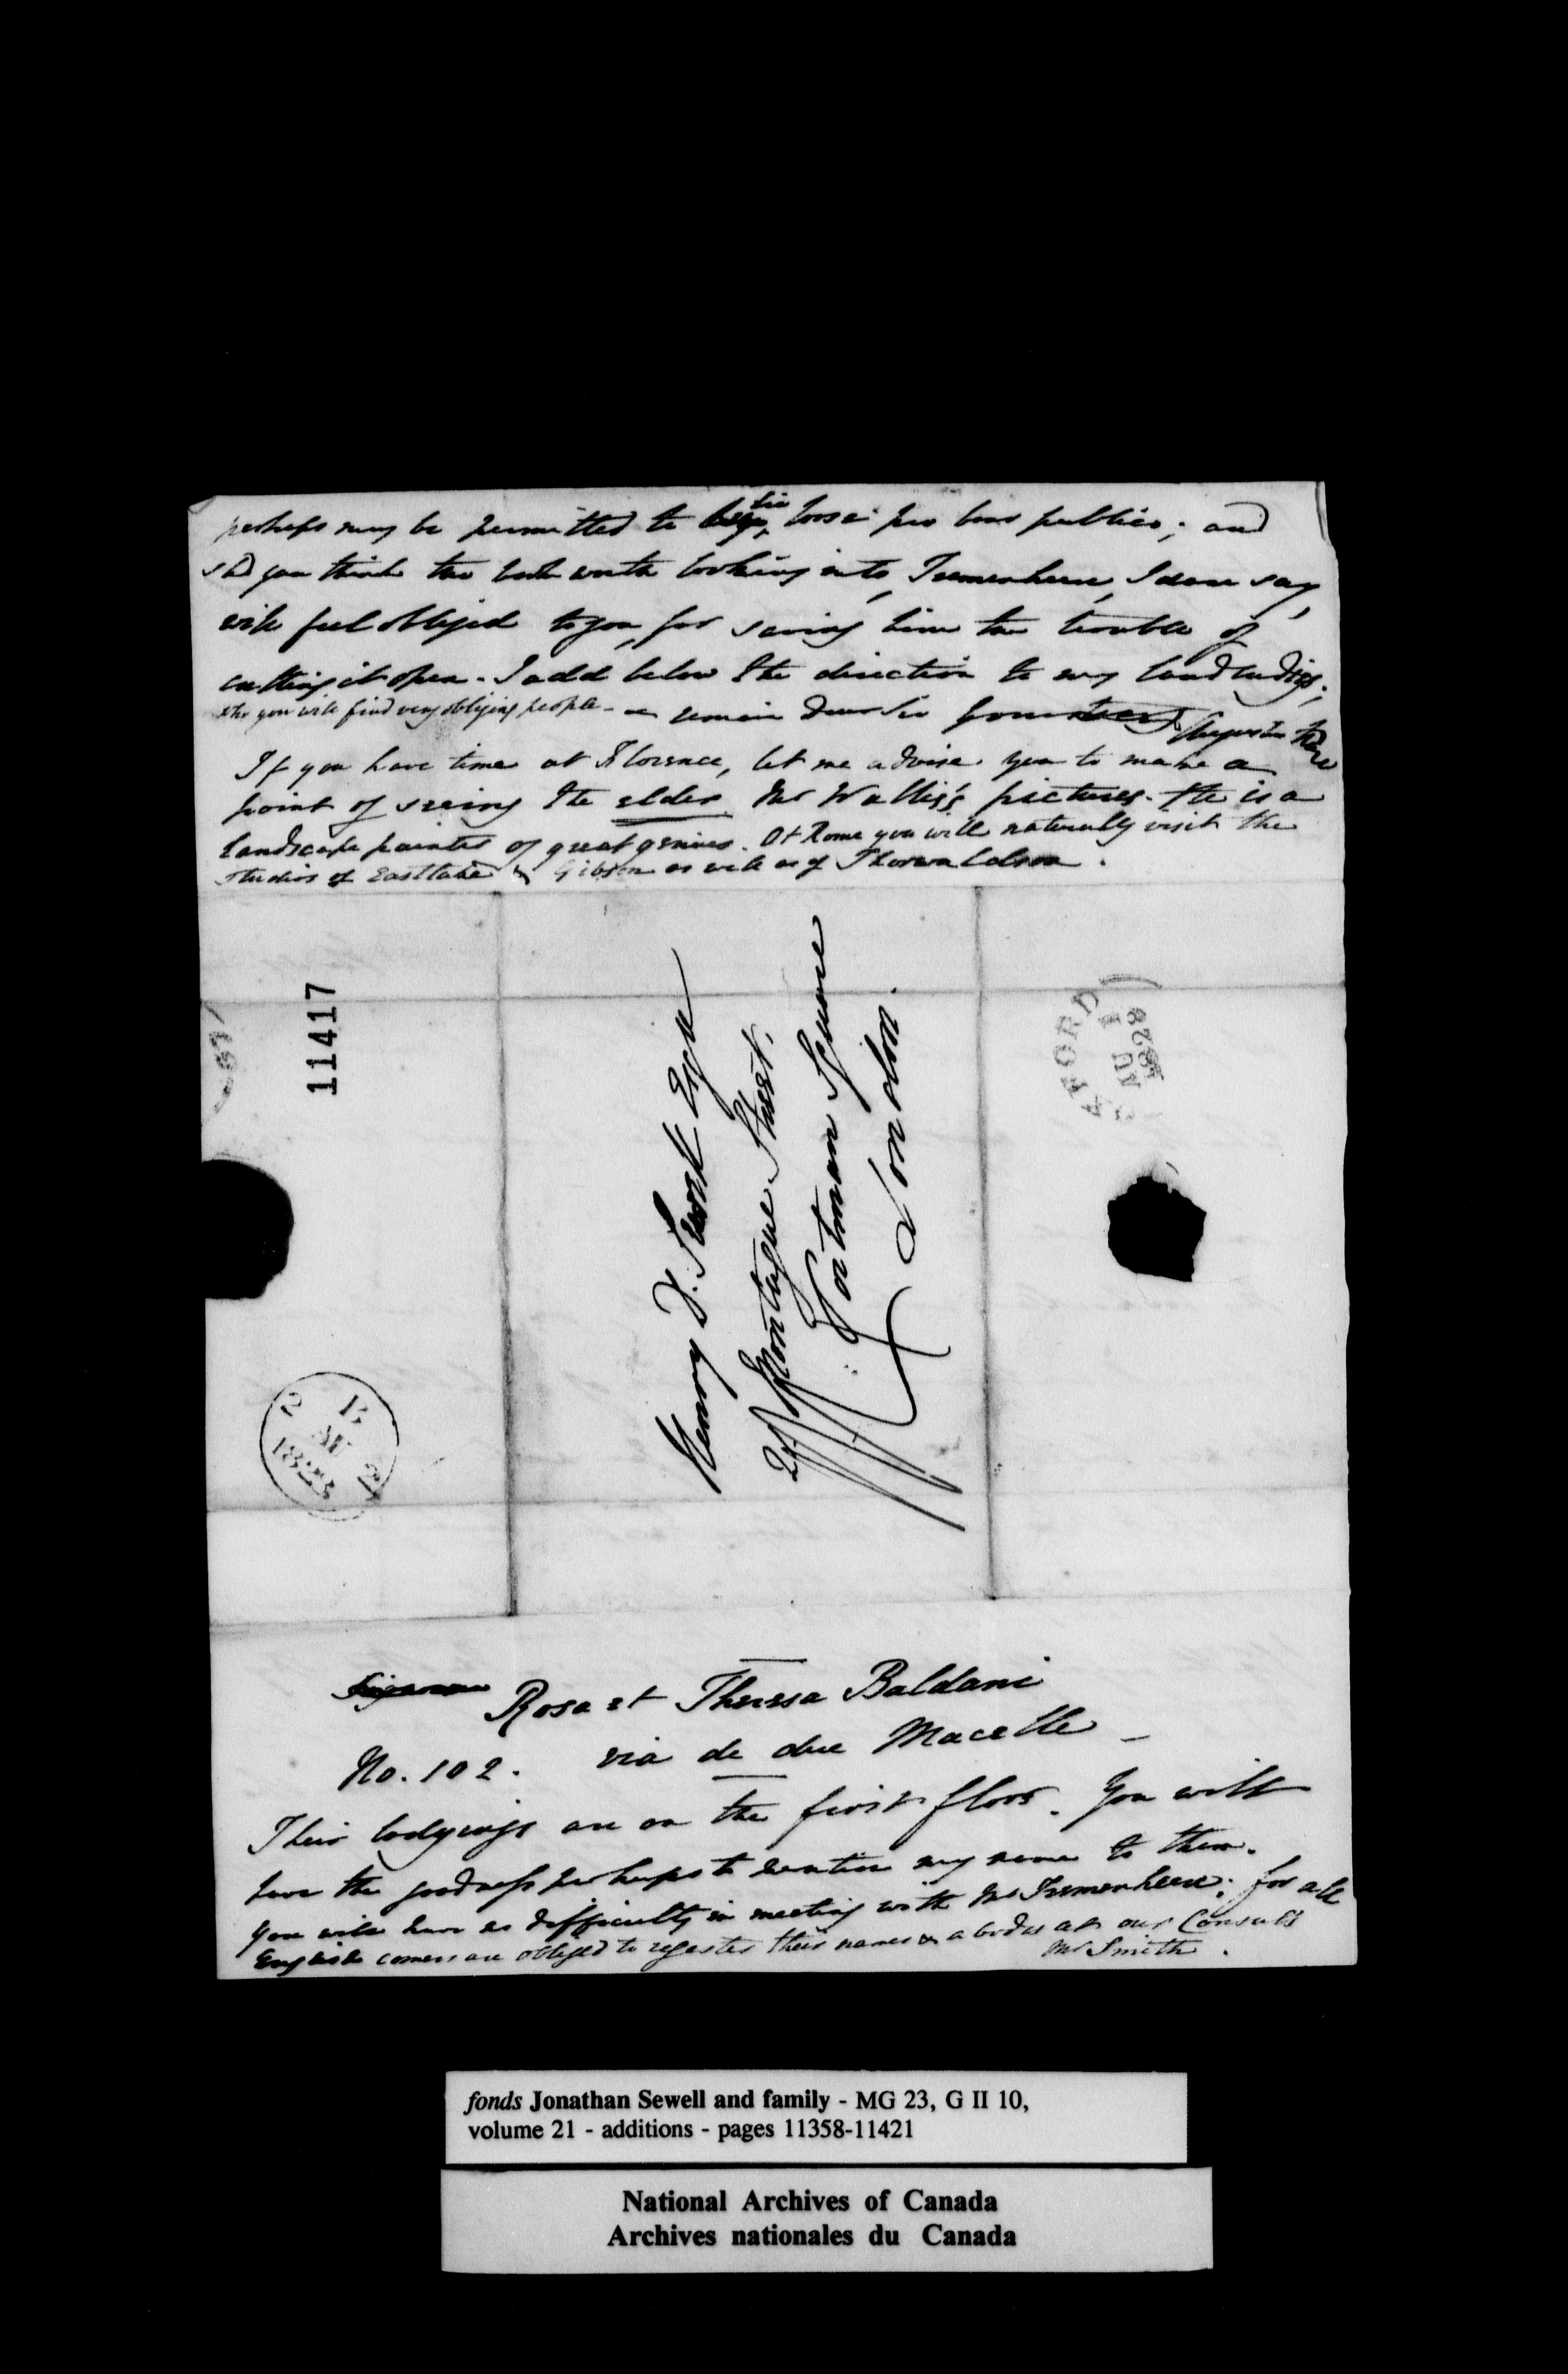 perhaps may be permitted to lie loose pro bono publico; and
shd you think the book worth looking into, Tremenheere, I dare say,
will feel obliged to you, for saving him the trouble of
cutting it open. I add below the direction to my landladies;
who you will find very obliging people. remain dear Sir Augustus Hare
If you have time at Florence, let me advise you to make a
point of seeing the elder Mr Wallis's pictures. He is a
landscape painter of great genius. At Rome you will naturally visit the
studios of Eastlake & Gibson as well as of Thorwaldson.
11417
Henry D. Sewell Esqre
Montague Street,
Portman Square
London.
AU 1
1828
B
2 AU 2
1828
Rosa et Theresa Baldani
No. 102. via de due Macelle
Their lodgings are on the first floor. You will
have the goodness perhaps to mention my name to them.
You will have no difficulty in meeting with Mr Tremenheere; for all
English comers are obliged to register their names & abodes at our Consul's
Mr Smith.
fonds Jonathan Sewell and family - MG 23, G II 10,
volume 21 - additions - pages 11358-11421
National Archives of Canada
Archives nationales du Canada